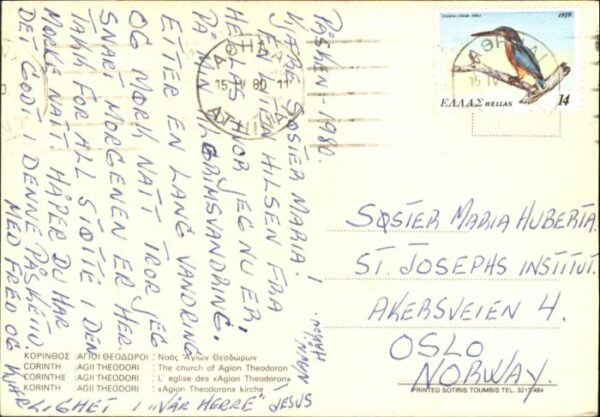 PÅSKEN - 1980.
KJÆRE SØSTER MARIA!
EN LITEN HILSEN FRA
HELLAS HVOR JEG NU ER,
PÅ MIN PILGRIMSVANDRING.
ETTER EN LANG VANDRING
OG MØRK NATT TROR JEG
SNART MORGENEN ER HER
TAKK FOR ALL STØTTE I DEN
MØRKE NATT. HÅPER DU HAR
DET GODT DENNE PÅSKETID
MED FRED OG
KJÆRLIGHET I "VÅR HERRE" JESUS
ΑΘΗΝΑΙ
15 IV 80 11
ATHINAI
ΑΘΗΝΑΙ
15 IV
1979
ΕΛΛΑΣ HELLAS 14
SØSTER MARIA HUBERTA.
ST. JOSEPHS INSTITUT.
AKERSVEIEN 4.
OSLO
NORWAY.
ΚΟΡΙΝΘΟΣ : ΑΓΙΟΙ ΘΕΟΔΩΡΟΙ : Ναός "Αγίων Θεοδώρων
CORINTH : AGII THEODORI : The church of Agion Theodoron
CORINTHE : AGII THEODORI : L' eglise des «Agion Theodoron»
KORINTH : AGII THEODORI : «Agion Theodoron» kirche
PRINTED SOTIRIS TOUMBIS TEL. 3217484